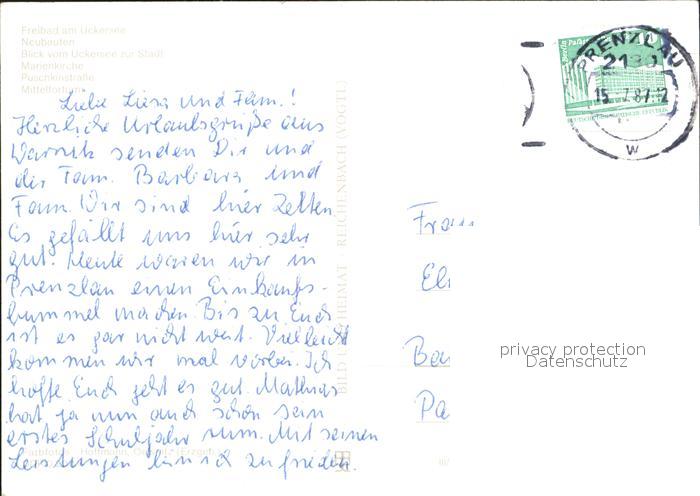 Freibad am Uckersee
Neubauten
Blick vom Uckersee zur Stadt
Marienkirche
Puschkinstraße
Mittelfortum
Liebe Liesa und Fam.!
Herzliche Urlaubsgrüße aus
senden Dir und
der Fam. Barbara und
Fam. Wir sind hier Zelten
Es gefällt uns hier sehr
gut. Heute waren wir in
Prenzlau einen Einkaufs-
bummel machen. Bis zu Euch
ist es gar nicht weit. Vielleicht
kommen wir mal vorbei. Ich
hoffe Euch geht es gut. Mathias
hat ja nun auch schon sein
erstes Schuljahr rum. Mit seinen
Leistungen bin ich zufrieden.
BILD UND HEIMAT · REICHENBACH (VOGTL)
PRENZLAU
15. 7. 87-12
W
Frau
privacy protection
Datenschutz